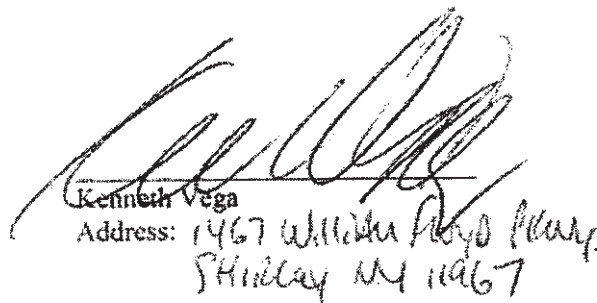 Kenneth Vega
Address: 1467 William Floyd Pkwy.
SHIRLEY NY 11967